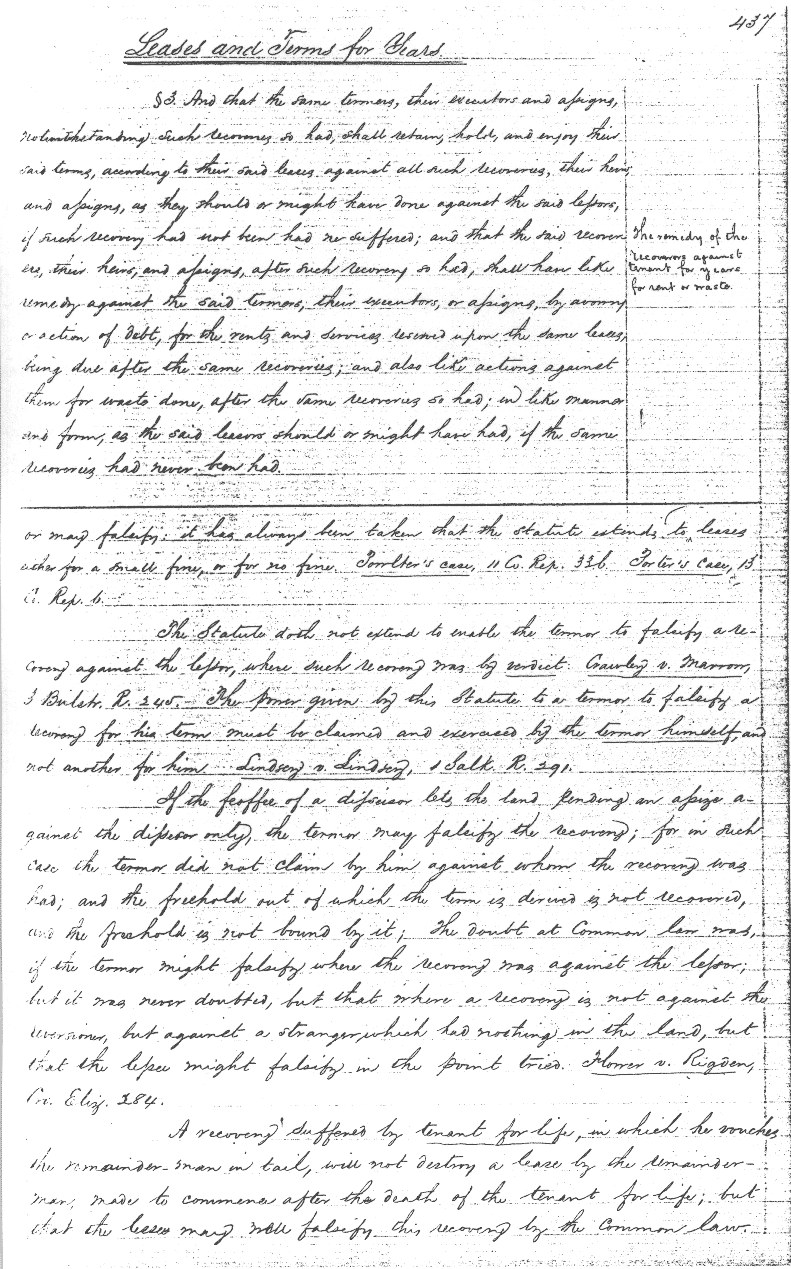 437
Leases and Terms for Years
§3. And that the same termers, their executors and assigns,
notwithstanding such recoveries so had, shall retain, hold, and enjoy their
said terms, according to their said leases against all such recoveries, their heirs
and assigns, as they should or might have done against the said lessors,
if such recovery had not been had ne suffered; and that the said recover
ers, their heirs, and assigns, after such recovery so had, shall have like
remedy against the said termers, their executors, or assigns, by avowry
or action of debt, for the rents and services reserved upon the same leases,
being due after the same recoveries; and also like actions against
them for waste done, after the same recoveries so had; in like manner
and form, as the said lessors should or might have had, if the same
recoveries had never been had.
The remedy of the
recoverors against
tenant for years
for rent or waste.
or may falsify: it has always been taken that the statute extends to leases
either for a small fine, or for no fine. Fowlter's case, 11 Co. Rep. 33b. Forter's case, 13
Co. Rep. 6.
The Statute doth not extend to enable the termor to falsify a re-
covery against the lessor, where such recovery was by verdict. Crawley v. Marrow,
3 Bulstr. R. 245. — The power given by this Statute to a termor to falsify a
recovery for his term must be claimed and exercised by the termor himself, and
not another for him. Lindsey v. Lindsey, 1 Salk. R. 291.
If the feoffee of a disseisor lets the land pending an assize a-
gainst the disseisor only, the termor may falsify the recovery; for in such
case the termor did not claim by him against whom the recovery was
had; and the freehold out of which the term is derived is not recovered,
and the freehold is not bound by it; The doubt at Common law was,
if the termor might falsify where the recovery was against the lessor;
but it was never doubted, but that where a recovery is not against the
reversioner, but against a stranger, which had nothing in the land, but
that the lessee might falsify in the point tried. Flower v. Rigden,
Cro. Eliz. 284.
A recovery suffered by tenant for life, in which he vouches
the remainder-man in tail, will not destroy a lease by the remainder-
man, made to commence after the death of the tenant for life; but
that the lessee may well falsify this recovery by the common law.